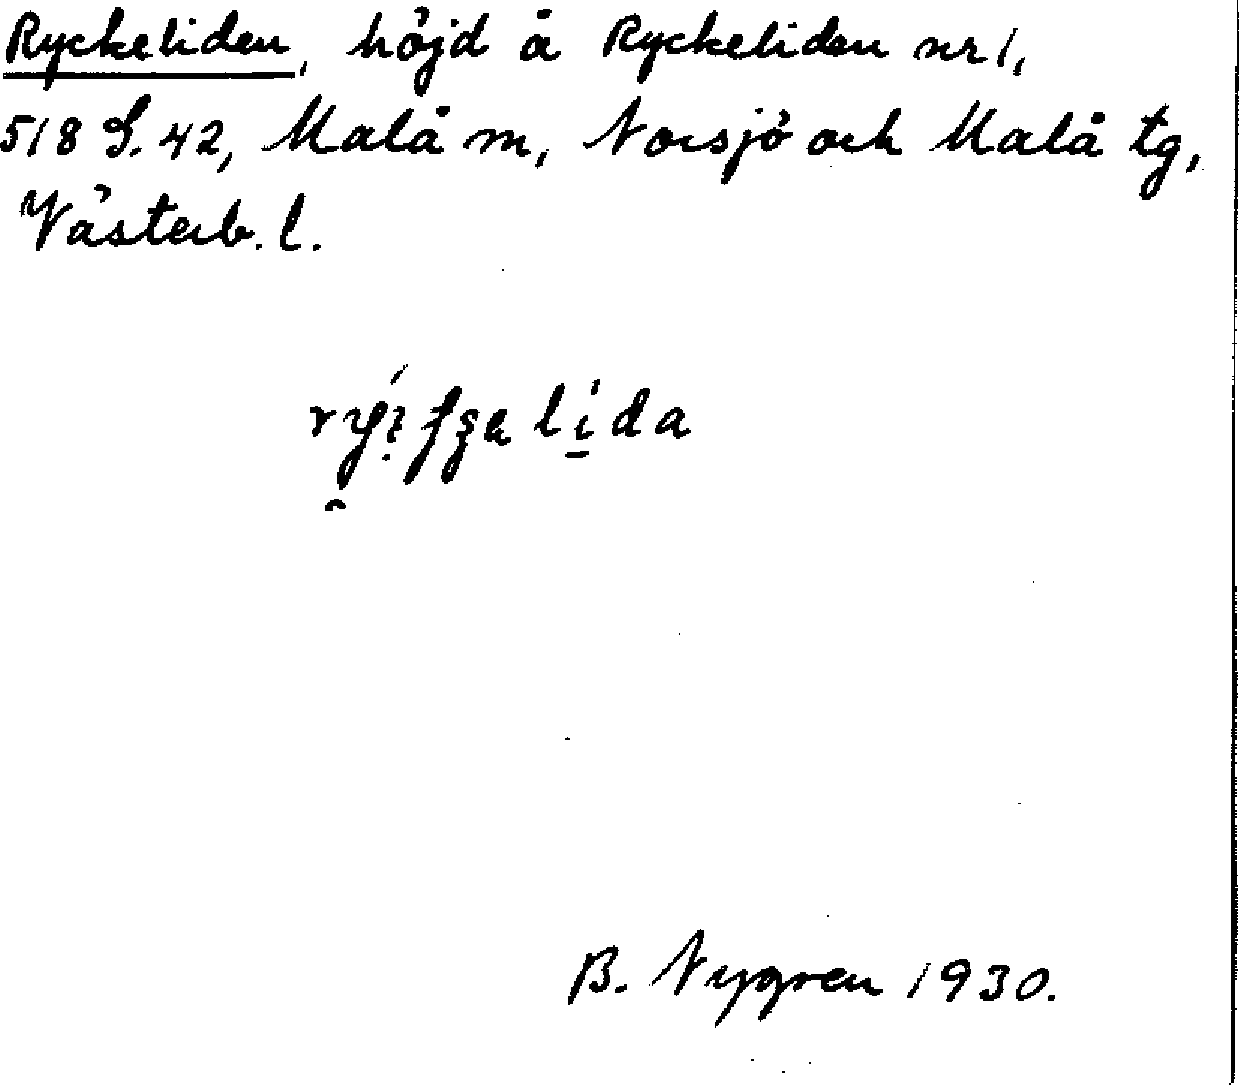 Ryckeliden, höjd å Ryckeliden nr 1,
518 S. 42, Malå m, Norsjö och Malå tg,
Västerb. l.
lida
B. Nygren 1930.